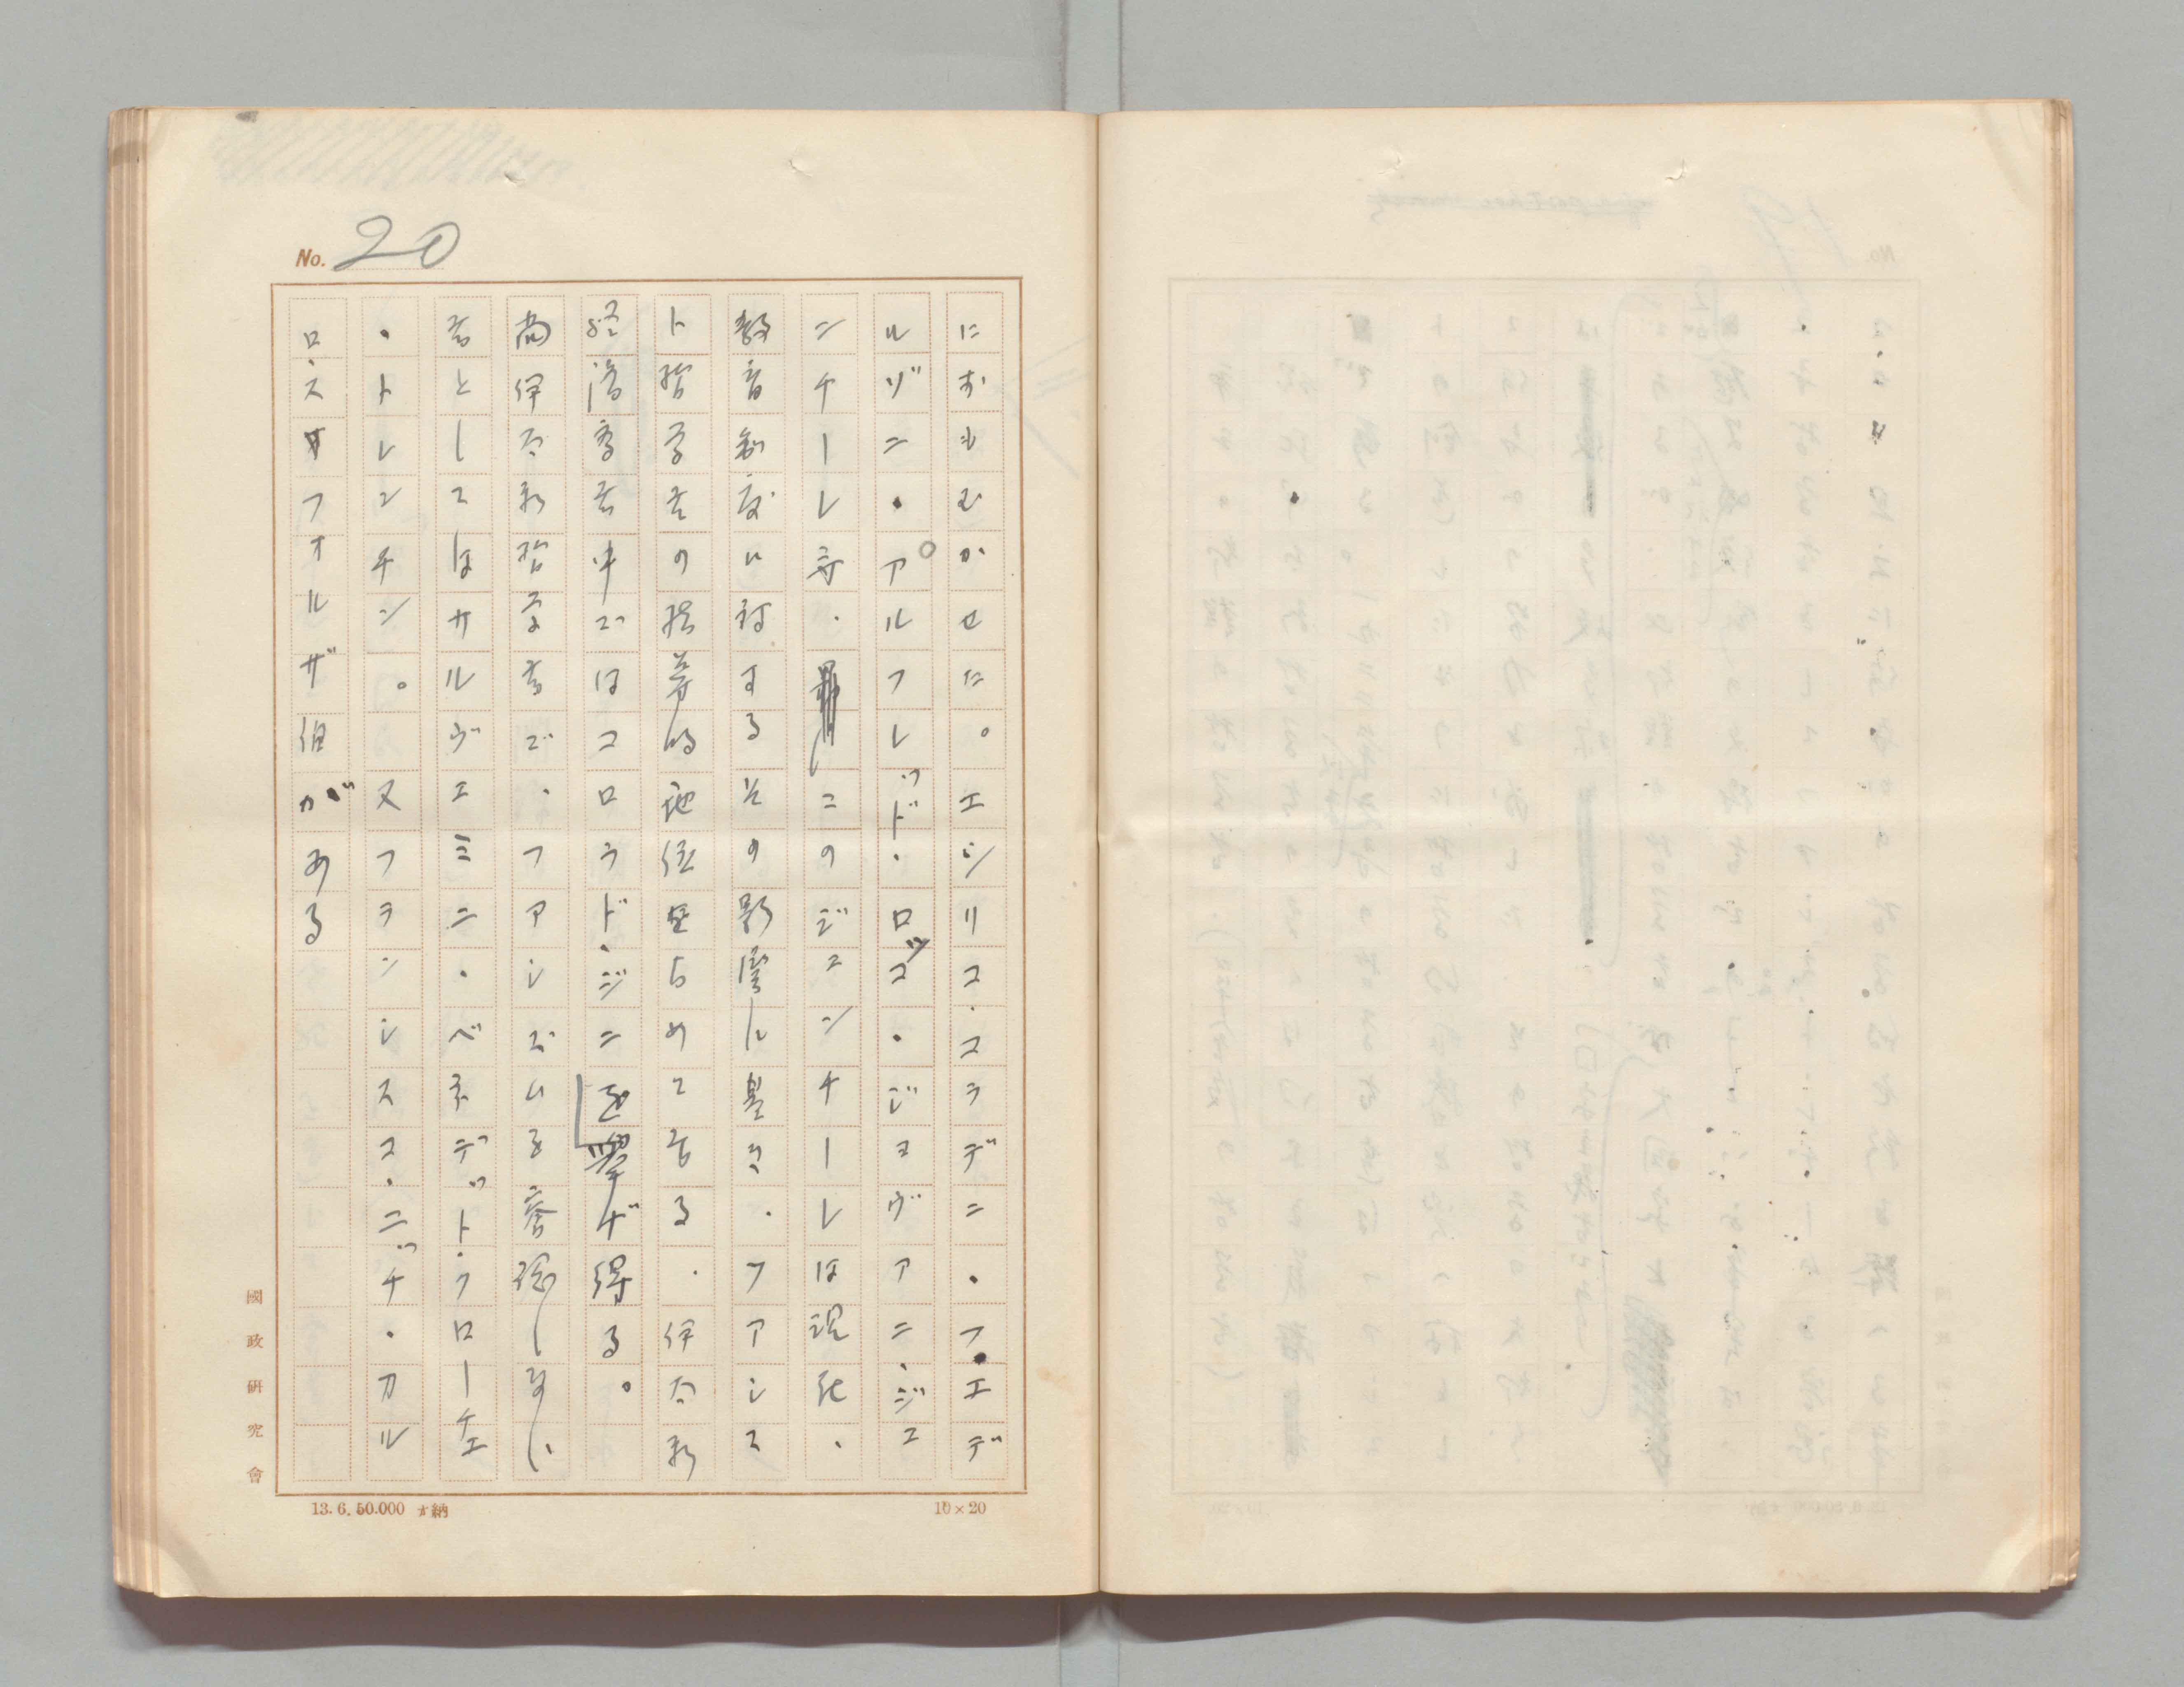 No. 20
におもむかせた。エンリコ・コラデニ・フエデ
ルゾニ・アルフレッド・ロッコ・ジヨヴアニ・ジエ
ンチーレ等・このジエンチーレは現死、
教育制度に対するその影響に基き、フアシス
ト哲学者の指導的地位を占めて居る・伊太利
経済学者中ではコロラド・ジニを挙げ得る。
尚伊太利哲学者で・フアシズムを容認しない
者としてはサルヴエミニ・ベネデット・クローチエ
・トレンチン。又フランシスコ・ニッチ・カル
ロ・スフオルザ伯がある
國政研究會
13.6.50.000 納
10×20